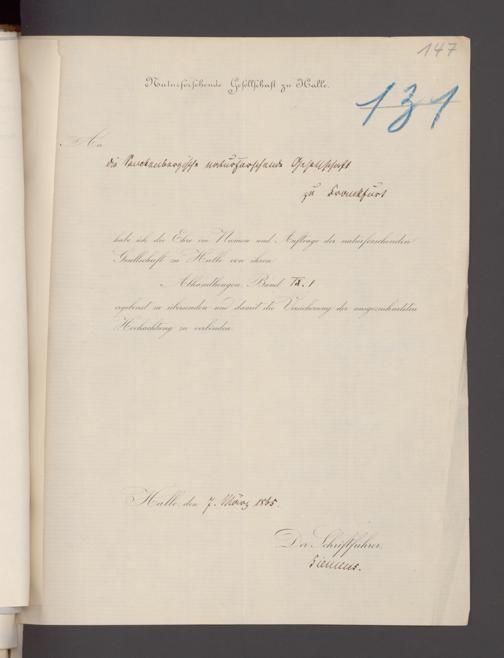 147
131
Naturforschende Gesellschaft zu Halle.
An
die Senckenbergische naturforschende Gesellschaft
zu Frankfurt
habe ich die Ehre im Namen und Auftrage der naturforschenden
Gesellschaft zu Halle von ihren
Abhandlungen, Band IX. 1
ergebenst zu übersenden und damit die Versicherung der ausgezeichneten
Hochachtung zu verbinden.
Halle, den 7. März 1865.
Der Schriftführer,